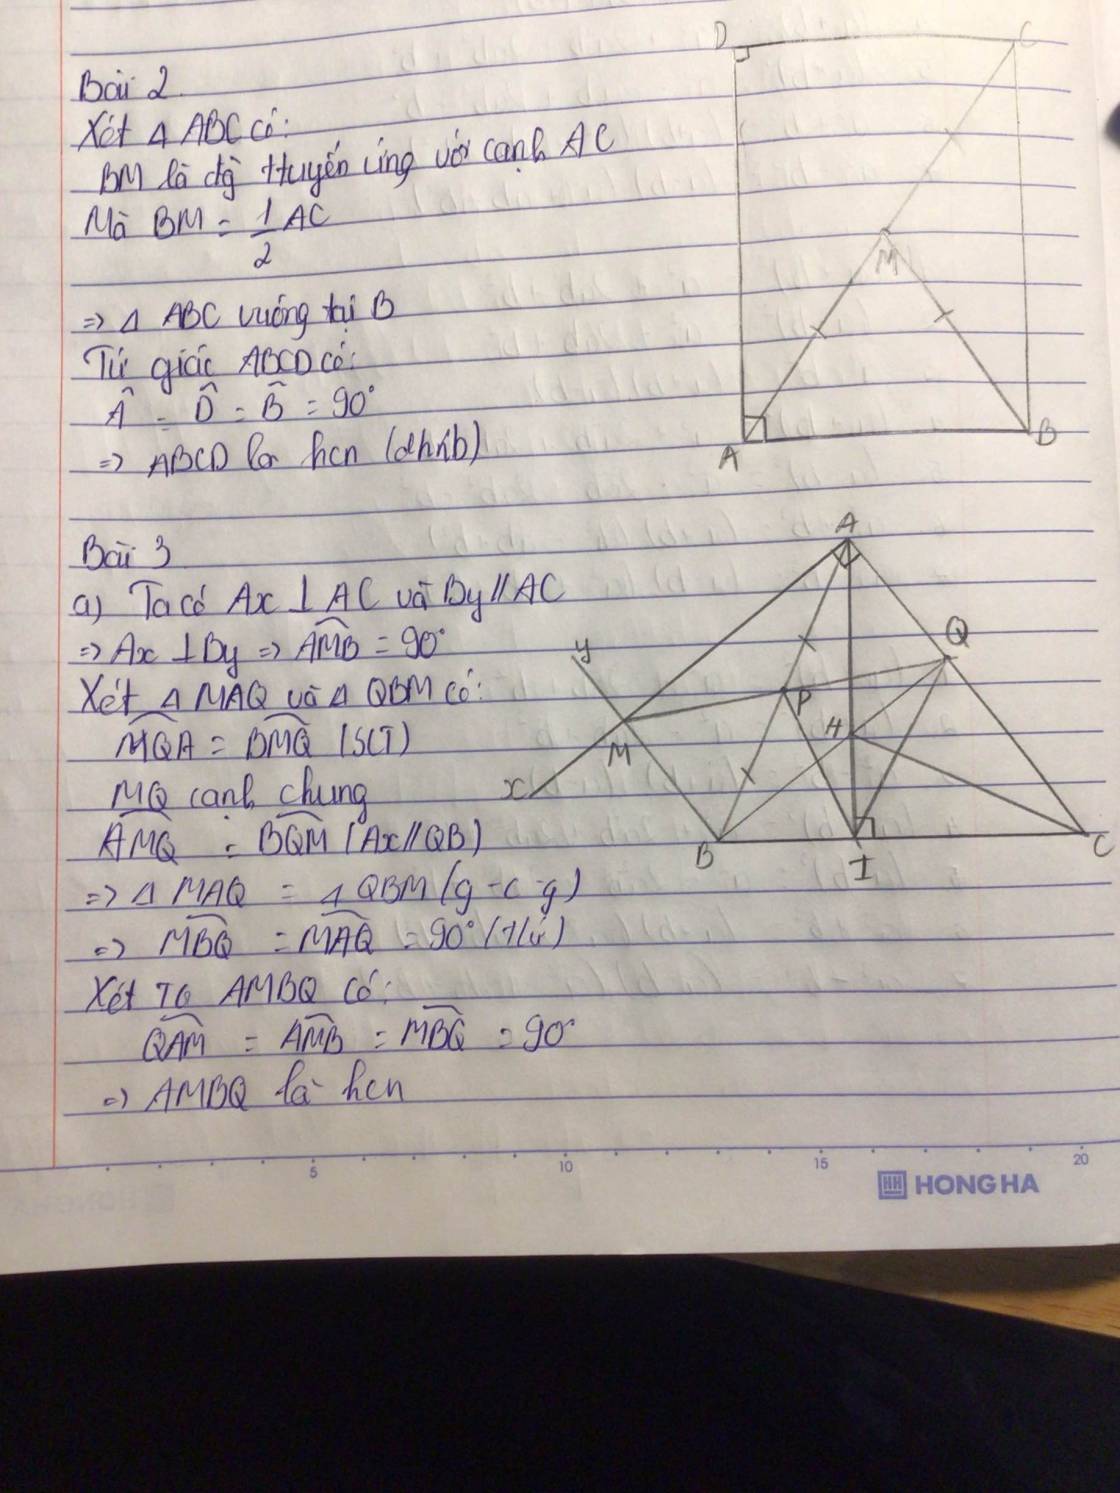 Bài 2.
Xét Δ ABC có:
BM là đg Huyến ứng với cạnh AC
Mà BM = 1/2 AC
=> Δ ABC vuông tại B
Tứ giác ABCD có:
Â = D̂ = B̂ = 90°
=> ABCD là hcn (dhnb)
D
C
M
A
B
Bài 3
a) Ta có Ax ⊥ AC và By // AC
=> Ax ⊥ By => AMB = 90°
Xét Δ MAQ và Δ QBM có:
MQA = BMQ (SLT)
MQ cạnh chung
AMQ = BQM (Ax // QB)
=> Δ MAQ = Δ QBM (g-c-g)
=> MBQ = MAQ = 90° (t/ứ)
Xét TG AMBQ có:
QAM = AMB = MBQ = 90°
=> AMBQ là hcn
A
Q
y
P
H
M
x
B
I
C
5
10
15
20
HONG HA